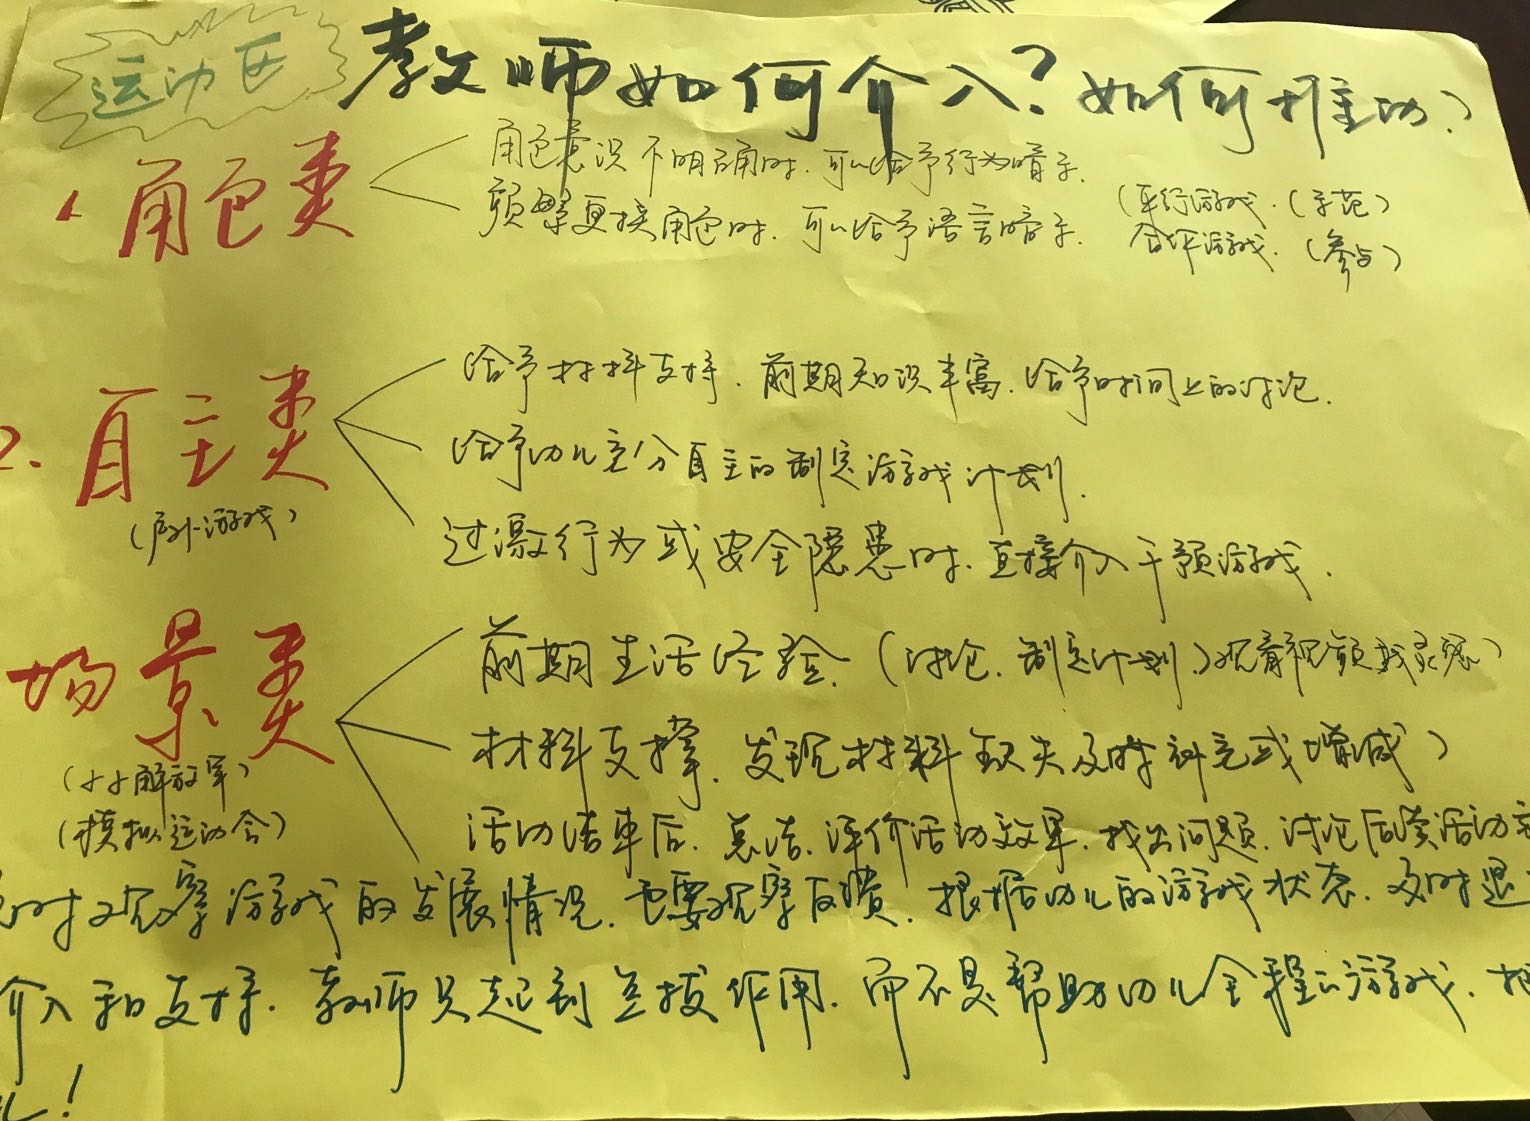 运动区
教师如何介入?如何推动?
1、角色类
角色意识不明确时.可以给予行为暗示.
频繁更换角色时.可以给予语言暗示.
(平行游戏.(示范)
合作游戏.(参与)
2.自主类
(户外游戏)
给予材料支持.前期知识丰富.给予时间上的讨论.
给予幼儿充分自主的制定游戏计划.
过激行为或安全隐患时.直接介入干预游戏.
场景类
(小小解放军)
(模拟运动会)
前期生活经验.(讨论.制定计划.)观看视频找灵感)
材料支撑.发现材料缺失及时补充或增减)
活动结束后.总结.评价活动效果.找出问题.讨论后续活动
时观察游戏的发展情况.也要观察反馈.根据幼儿的游戏状态.及时退
介入和支持.教师只起到点拨作用.而不是帮助幼儿全程游戏.把
!